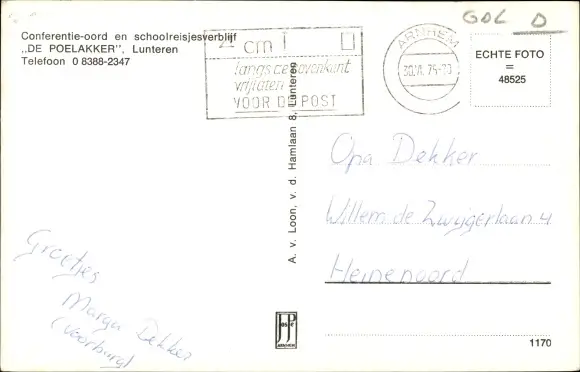 Conferentie-oord en schoolreisjesverblijf
„DE POELAKKER", Lunteren
Telefoon 0 8388-2347
cm
langs de bovenkant
vrijlaten
VOOR DE POST
ARNHEM
GDL D
ECHTE FOTO
=
48525
A. v. Loon, v. d. Hamlaan 8, Lunteren
Opa Dekker
Willem de Zwijgerlaan 4
Heinenoord
Groetjes
Marga Dekker
(Voorburg)
JosPé
ARNHEM
1170